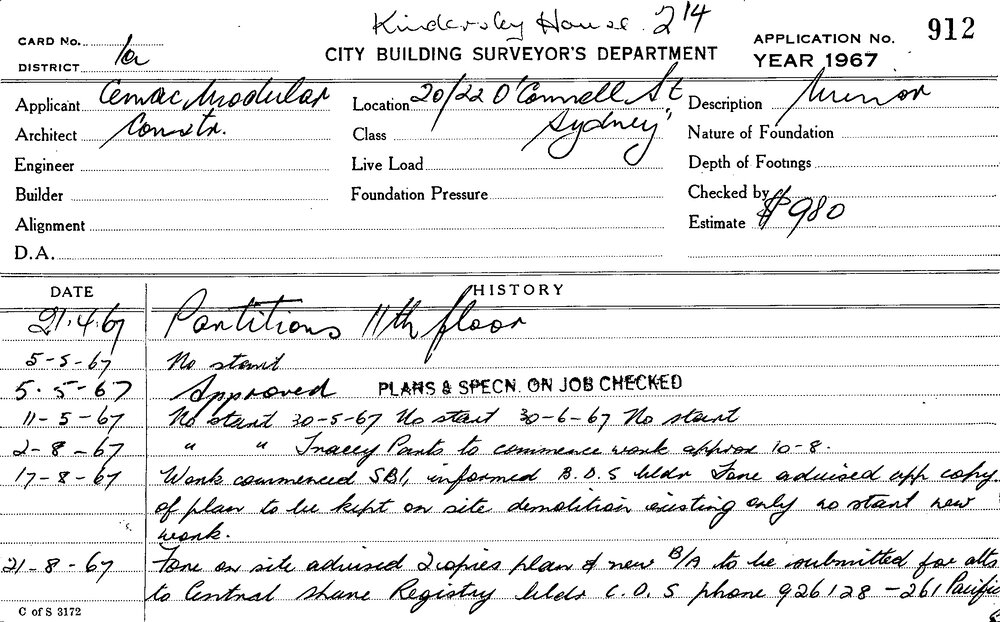 Kindersley House 214
CARD No.
CITY BUILDING SURVEYOR'S DEPARTMENT
APPLICATION No. 912
DISTRICT 1a
YEAR 1967
Applicant Cemac Modular
Location 20/22 O'Connell St
Description Minor
Architect Constr.
Class Sydney
Nature of Foundation
Engineer
Live Load
Depth of Footings
Builder
Foundation Pressure
Checked by
Alignment
Estimate $980
D.A.
DATE HISTORY
21.4.67 Partitions 11th floor
5-5-67 No start
5.5-67 Approved PLANS & SPECN. ON JOB CHECKED
11-5-67 No start 30-5-67 No start 30-6-67 No start
2-8-67 " " Tracey Parts to commence work approx 10-8.
17-8-67 Work commenced SB1, informed B.O.S bldr Fone advised app copy
of plan to be kept on site demolition existing only no start new
work.
21-8-67 Fone on site advised 2 copies plan & new B/A to be submitted for alts
to Central Share Registry bldr C.O.S phone 926128-261 Pacific
C of S 3172